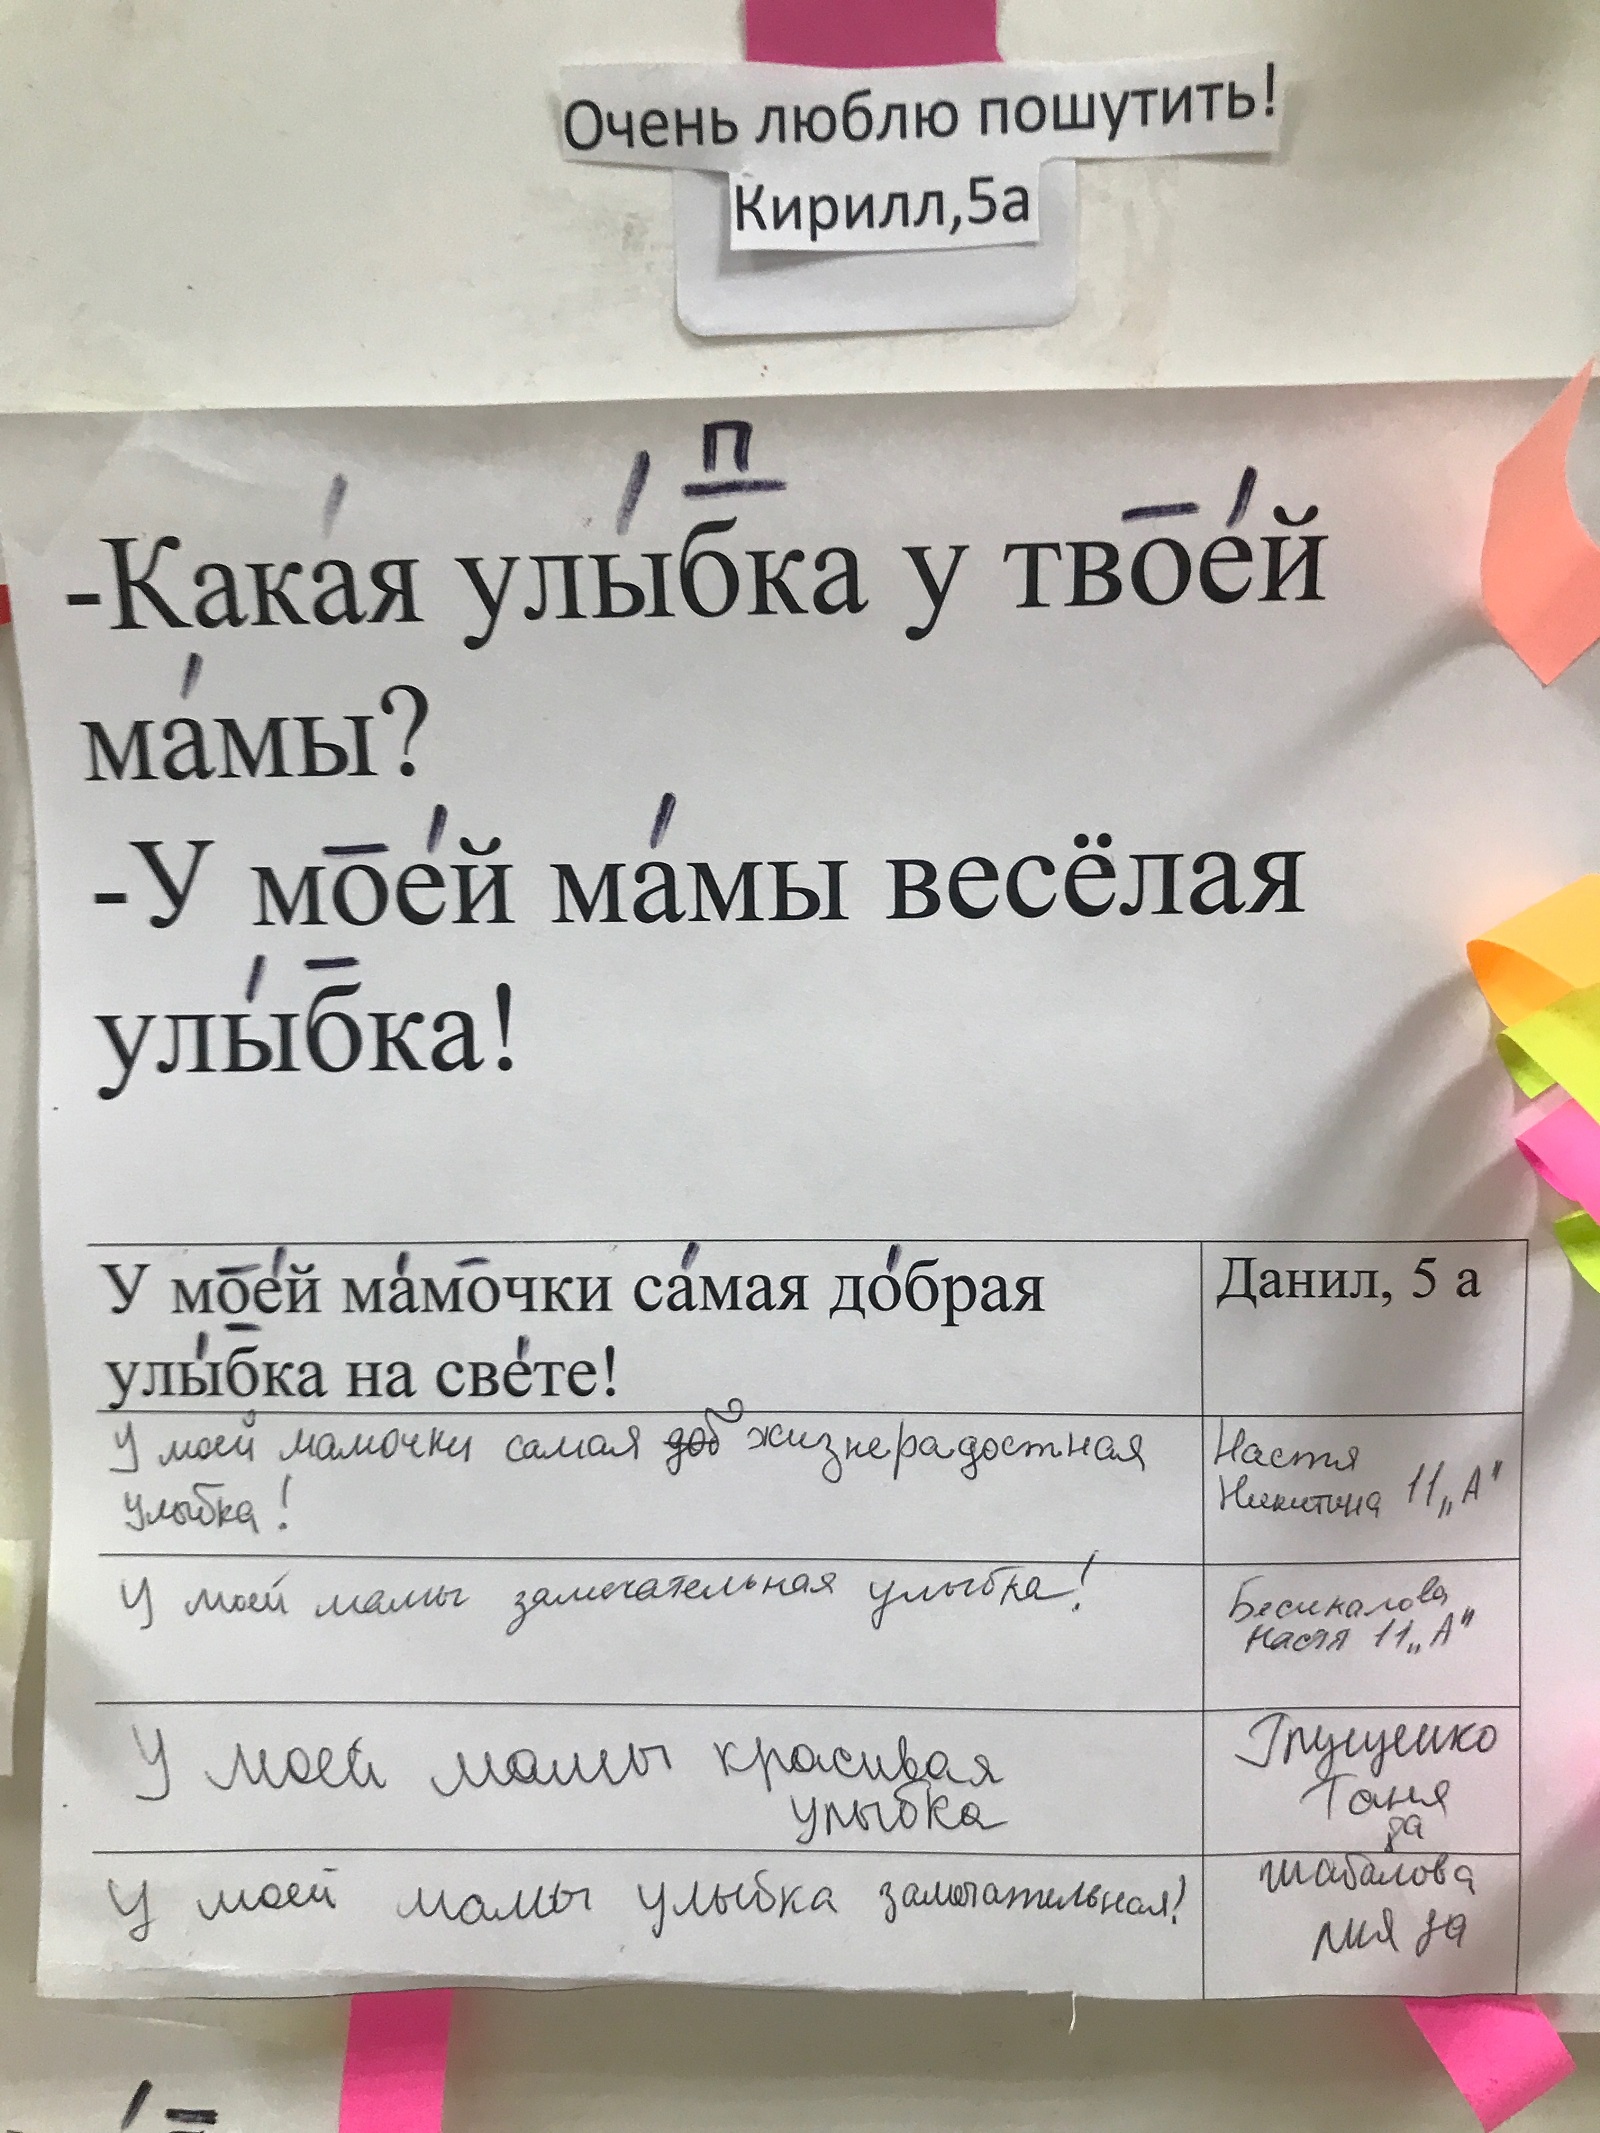 Очень люблю пошутить!
Кирилл,5а
П
-Кака́я улы́бка у твоéй
ма́мы?
-У моéй ма́мы весёлая
улы́бка!
У моéй ма́мочки са́мая до́брая
улы́бка на свéте!
Данил, 5 а
У моей мамочки самая доб жизнерадостная
улыбка!
Настя
Никитина 11 „А"
У моей мамы замечательная улыбка!
Настя 11 „А"
У моей мамы красивая
улыбка
Таня
У моей мамы улыбка замечательная!
Шабалова